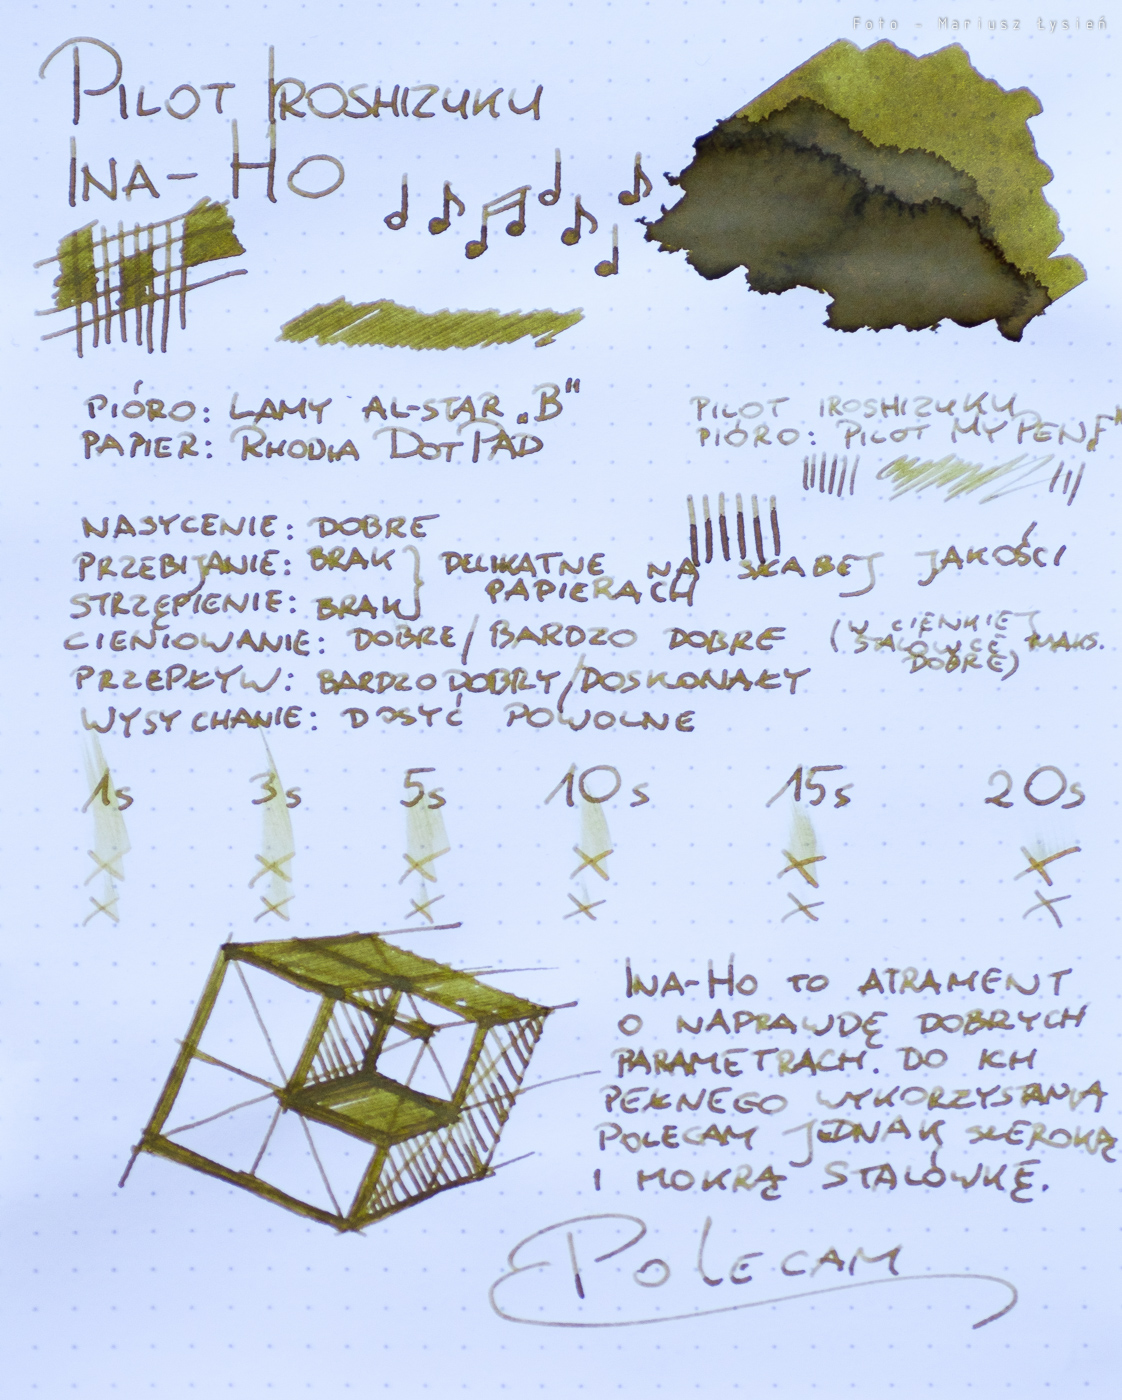 Foto - Mariusz Łysień
PILOT IROSHIZUKU
INA-HO
PIÓRO: LAMY AL-STAR „B"
PAPIER: RHODIA DOTPAD
PILOT IROSHIZUKU
PIÓRO: PILOT MYPEN „F"
NASYCENIE: DOBRE
PRZEBIJANIE: BRAK } DELIKATNE NA SŁABEJ JAKOŚCI
STRZĘPIENIE: BRAK } PAPIERACH
CIENIOWANIE: DOBRE/BARDZO DOBRE (W CIENKIEJ
STALÓWCE MAKS.
DOBRE)
PRZEPŁYW: BARDZO DOBRY/DOSKONAŁY
WYSYCHANIE: DOSYĆ POWOLNE
1s 3s 5s 10s 15s 20s
INA-HO TO ATRAMENT
O NAPRAWDĘ DOBRYCH
PARAMETRACH. DO ICH
PEŁNEGO WYKORZYSTANIA
POLECAM JEDNAK SZEROKĄ
I MOKRĄ STALÓWKĘ.
POLECAM